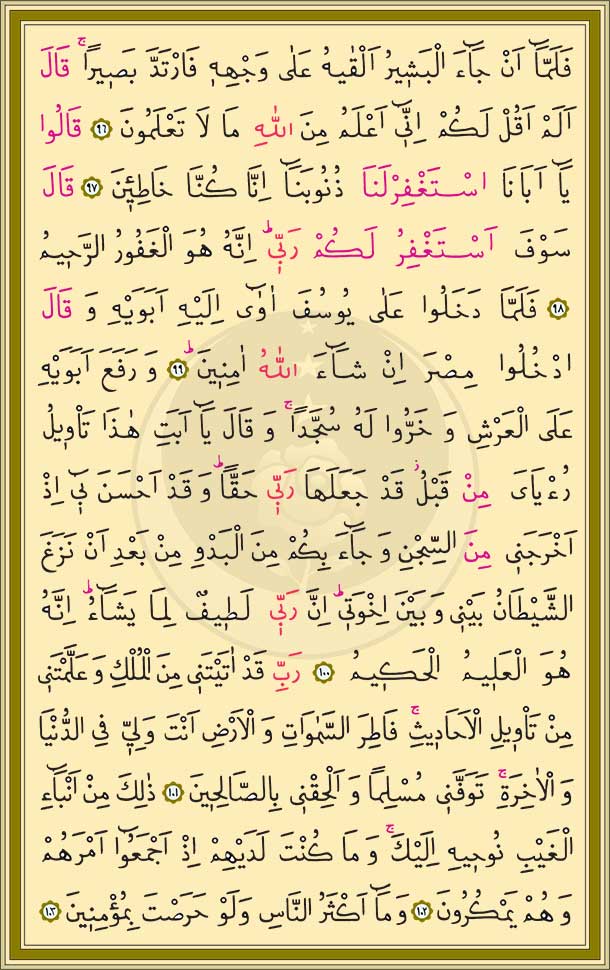 فَلَمَّٓا اَنْ جَٓاءَ الْبَش۪يرُ اَلْقٰيهُ عَلٰى وَجْهِه۪ فَارْتَدَّ بَص۪يراًۚ قَالَ
اَلَمْ اَقُلْ لَكُمْ اِنّ۪ٓي اَعْلَمُ مِنَ اللّٰهِ مَا لَا تَعْلَمُونَ ﴿٩٦﴾ قَالُوا
يَٓا اَبَانَا اسْتَغْفِرْلَنَا ذُنُوبَنَٓا اِنَّا كُنَّا خَاطِـ۪ٔينَ ﴿٩٧﴾ قَالَ
سَوْفَ اَسْتَغْفِرُ لَكُمْ رَبّ۪يۜ اِنَّهُ هُوَ الْغَفُورُ الرَّح۪يمُ
﴿٩٨﴾ فَلَمَّا دَخَلُوا عَلٰى يُوسُفَ اٰوٰٓى اِلَيْهِ اَبَوَيْهِ وَ قَالَ
ادْخُلُوا مِصْرَ اِنْ شَٓاءَ اللّٰهُ اٰمِن۪ينَۜ ﴿٩٩﴾ وَ رَفَعَ اَبَوَيْهِ
عَلَى الْعَرْشِ وَ خَرُّوا لَهُ سُجَّداًۚ وَ قَالَ يَٓا اَبَتِ هٰذَا تَأْو۪يلُ
رُءْيَايَ مِنْ قَبْلُۘ قَدْ جَعَلَهَا رَبّ۪ي حَقاًّۜ وَ قَدْ اَحْسَنَ ب۪ٓي اِذْ
اَخْرَجَن۪ي مِنَ السِّجْنِ وَ جَٓاءَ بِكُمْ مِنَ الْبَدْوِ مِنْ بَعْدِ اَنْ نَزَغَ
الشَّيْطَانُ بَيْن۪ي وَ بَيْنَ اِخْوَت۪يۜ اِنَّ رَبّ۪ي لَط۪يفٌ لِمَا يَشَٓاءُۜ اِنَّهُ
هُوَ الْعَل۪يمُ الْحَك۪يمُ ﴿١٠٠﴾ رَبِّ قَدْ اٰتَيْتَن۪ي مِنَ الْمُلْكِ وَ عَلَّمْتَن۪ي
مِنْ تَأْو۪يلِ الْاَحَاد۪يثِۚ فَاطِرَ السَّمٰوَاتِ وَ الْاَرْضِ اَنْتَ وَلِيّ۪ فِي الدُّنْيَا
وَ الْاٰخِرَةِۚ تَوَفَّن۪ي مُسْلِماً وَ اَلْحِقْن۪ي بِالصَّالِح۪ينَ ﴿١٠١﴾ ذٰلِكَ مِنْ اَنْبَٓاءِ
الْغَيْبِ نُوح۪يهِ اِلَيْكَۚ وَ مَا كُنْتَ لَدَيْهِمْ اِذْ اَجْمَعُٓوا اَمْرَهُمْ
وَ هُمْ يَمْكُرُونَ ﴿١٠٢﴾ وَ مَٓا اَكْثَرُ النَّاسِ وَلَوْ حَرَصْتَ بِمُؤْمِن۪ينَ ﴿١٠٣﴾